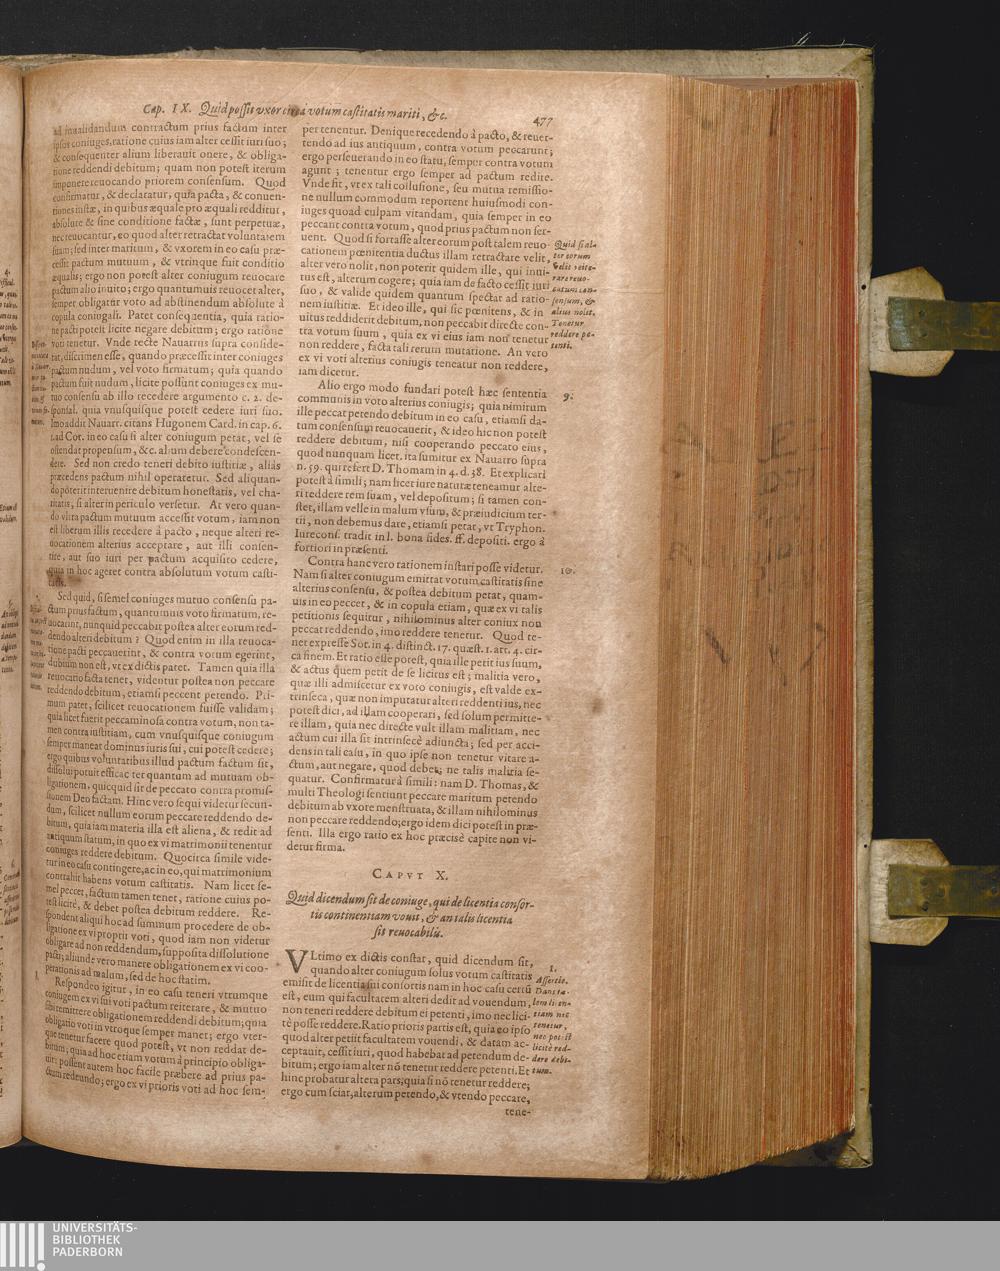 Cap. IX. Quid possit vxor circa votum castitatis mariti, &c.
477
ad inualidandum contractum prius factum inter
ipsos coniuges, ratione cuius iam alter cessit iuri suo;
& consequenter alium liberauit onere, & obliga-
tione reddendi debitum; quam non potest iterum
imponere reuocando priorem consensum. Quod
confirmatur, & declaratur, quia pacta, & conuen-
tiones iustæ, in quibus æquale pro æquali redditur,
absolute & sine conditione factæ, sunt perpetuæ,
nec reuocantur, eo quod alter retractat voluntatem
suam; sed inter maritum, & vxorem in eo casu præ-
cessit pactum mutuum, & vtrinque fuit conditio
æqualis; ergo non potest alter coniugum reuocare
pactum alio inuito; ergo quantumuis reuocet alter,
semper obligatur voto ad abstinendum absolute à
copula coniugali. Patet consequentia, quia ratio-
ne pacti potest licite negare debitum; ergo ratione
voti tenetur. Vnde recte Nauarrus supra conside-
rat, discrimen esse, quando præcessit inter coniuges
pactum nudum, vel voto firmatum; quia quando
pactum fuit nudum, licite possunt coniuges ex mu-
tuo consensu ab illo recedere argumento c. 2. de-
sponsal. quia vnusquisque potest cedere iuri suo.
Imo addit Nauarr. citans Hugonem Card. in cap. 6.
1. ad Cor. in eo casu si alter coniugum petat, vel se
ostendat propensum, &c. alium debere condescen-
dere. Sed non credo teneri debito iustitiæ, aliàs
præcedens pactum nihil operatetur. Sed aliquan-
do poterit interuenire debitum honestatis, vel cha-
ritatis, si alter in periculo versetur. At vero quan-
do vltra pactum mutuum accessit votum, iam non
est liberum illis recedere à pacto, neque alteri re-
uocationem alterius acceptare, aut illi consen-
tire, aut suo iuri per pactum acquisito cedere,
quia in hoc ageret contra absolutum votum casti-
tatis.
Sed quid, si semel coniuges mutuo consensu pa-
ctum prius factum, quantumuis voto firmatum, re-
uocarint, nunquid peccabit postea alter eorum red-
dendo alteri debitum? Quod enim in illa reuoca-
tione pacti peccauerint, & contra votum egerint,
dubium non est, vt ex dictis patet. Tamen quia illa
reuocatio facta tenet, videntur postea non peccare
reddendo debitum, etiamsi peccent petendo. Pri-
mum patet, scilicet reuocationem fuisse validam;
quia licet fuerit peccaminosa contra votum, non ta-
men contra iustitiam, cum vnusquisque coniugum
semper maneat dominus iuris sui, cui potest cedere;
ergo quibus voluntatibus illud pactum factum sit,
dissolui potuit efficacter quantum ad mutuam ob-
ligationem, quicquid sit de peccato contra promis-
sionem Deo factam. Hinc vero sequi videtur secun-
dum, scilicet nullum eorum peccare reddendo de-
bitum, quia iam materia illa est aliena, & redit ad
antiquum statum, in quo ex vi matrimonii tenentur
coniuges reddere debitum. Quocirca simile vide-
tur in eo casu contingere, ac in eo, qui matrimonium
contrahit habens votum castitatis. Nam licet se-
mel peccet, factum tamen tenet, ratione cuius po-
test licitè, & debet postea debitum reddere. Re-
spondent aliqui hoc ad summum procedere de ob-
ligatione ex vi proprii voti, quod iam non videtur
obligare ad non reddendum, supposita dissolutione
pacti; aliunde vero manere obligationem ex vi coo-
perationis ad malum, sed de hoc statim.
8.
Respondeo igitur, in eo casu teneri vtrumque
coniugem ex vi sui voti pactum reiterare, & mutuo
sibi remittere obligationem reddendi debitum; quia
obligatio voti in vtroque semper manet; ergo vter-
que tenetur facere quod potest, vt non reddat de-
bitum; quia ad hoc etiam votum à principio obliga-
uit: possent autem hoc facile præbere ad prius pa-
ctum redeundo; ergo ex vi prioris voti ad hoc sem-
per tenentur. Denique recedendo à pacto, & reuer-
tendo ad ius antiquum, contra votum peccarunt;
ergo perseuerando in eo statu, semper contra votum
agunt; tenentur ergo semper ad pactum redire.
Vnde fit, vt ex tali collusione, seu mutua remissio-
ne nullum commodum reportent huiusmodi con-
iuges quoad culpam vitandam, quia semper in eo
peccant contra votum, quod prius pactum non ser-
uent. Quod si fortasse alter eorum post talem reuo-
cationem pœnitentia ductus illam retractare velit,
alter vero nolit, non poterit quidem ille, qui inui-
tus est, alterum cogere; quia iam de facto cessit iuri
suo, & valide quidem quantum spectat ad ratio-
nem iustitiæ. Et ideo ille, qui sic pœnitens, & in
uitus reddiderit debitum, non peccabit directe con-
tra votum suum, quia ex vi eius iam non tenetur
non reddere, facta tali rerum mutatione. An vero
ex vi voti alterius coniugis teneatur non reddere,
iam dicetur.
Quid si al-
ter eorum
velit reite-
rare reuo-
catum con-
sensum, &
alius nolit.
Tenetur
reddere pe-
tenti.
Alio ergo modo fundari potest hæc sententia
communis in voto alterius coniugis; quia nimirum
ille peccat petendo debitum in eo casu, etiamsi da-
tum consensum reuocauerit, & ideo hic non potest
reddere debitum, nisi cooperando peccato eius,
quod nunquam licet. ita sumitur ex Nauarro supra
n. 59. qui refert D. Thomam in 4. d. 38. Et explicari
potest à simili; nam licet iure naturæ teneamur alte-
ri reddere rem suam, vel depositum; si tamen con-
stet, illam velle in malum vsum, & præiudicium ter-
tii, non debemus dare, etiamsi petat, vt Tryphon.
Iureconf. tradit in l. bona fides. ff. depositi. ergo à
fortiori in præsenti.
9.
Contra hanc vero rationem instari posse videtur.
Nam si alter coniugum emittat votum castitatis sine
alterius consensu, & postea debitum petat, quam-
uis in eo peccet, & in copula etiam, quæ ex vi talis
petitionis sequitur, nihilominus alter coniux non
peccat reddendo, imo reddere tenetur. Quod te-
net expresse Sot. in 4. distinct. 17. quæst. 1. art. 4. cir-
ca finem. Et ratio esse potest, quia ille petit ius suum,
& actus quem petit de se licitus est; malitia vero,
quæ illi admiscetur ex voto coniugis, est valde ex-
trinseca, quæ non imputatur alteri reddenti ius, nec
potest dici, ad illam cooperari, sed solum permitte-
re illam, quia nec directe vult illam malitiam, nec
actum cui illa sit intrinsecè adiuncta; sed per acci-
dens in tali casu, in quo ipse non tenetur vitare a-
ctum, aut negare, quod debet; ne talis malitia se-
quatur. Confirmatur à simili: nam D. Thomas, &
multi Theologi sentiunt peccare maritum petendo
debitum ab vxore menstruata, & illam nihilominus
non peccare reddendo; ergo idem dici potest in præ-
senti. Illa ergo ratio ex hoc præcisè capite non vi-
detur firma.
10.
CAPVT X.
Quid dicendum sit de coniuge, qui de licentia consor-
tis continentiam vouit, & an talis licentia
sit reuocabilis.
VLtimo ex dictis constat, quid dicendum sit,
quando alter coniugum solus votum castitatis
emisit de licentia sui consortis nam in hoc casu certũ
est, eum qui facultatem alteri dedit ad vouendum,
non teneri reddere debitum ei petenti, imo nec lici-
tè posse reddere. Ratio prioris partis est, quia eo ipso
quod alter petiit facultatem vouendi, & datam ac-
ceptauit, cessit iuri, quod habebat ad petendum de-
bitum; ergo iam alter nõ tenetur reddere petenti. Et
hinc probatur altera pars; quia si nõ tenetur reddere;
ergo cum sciat, alterum petendo, & vtendo peccare,
tene-
1.
Assertio.
Dans ta-
lem licen-
tiam nec
tenetur,
nec potest
licitè red-
dere debi-
tum.
UNIVERSITÄTS-
BIBLIOTHEK
PADERBORN